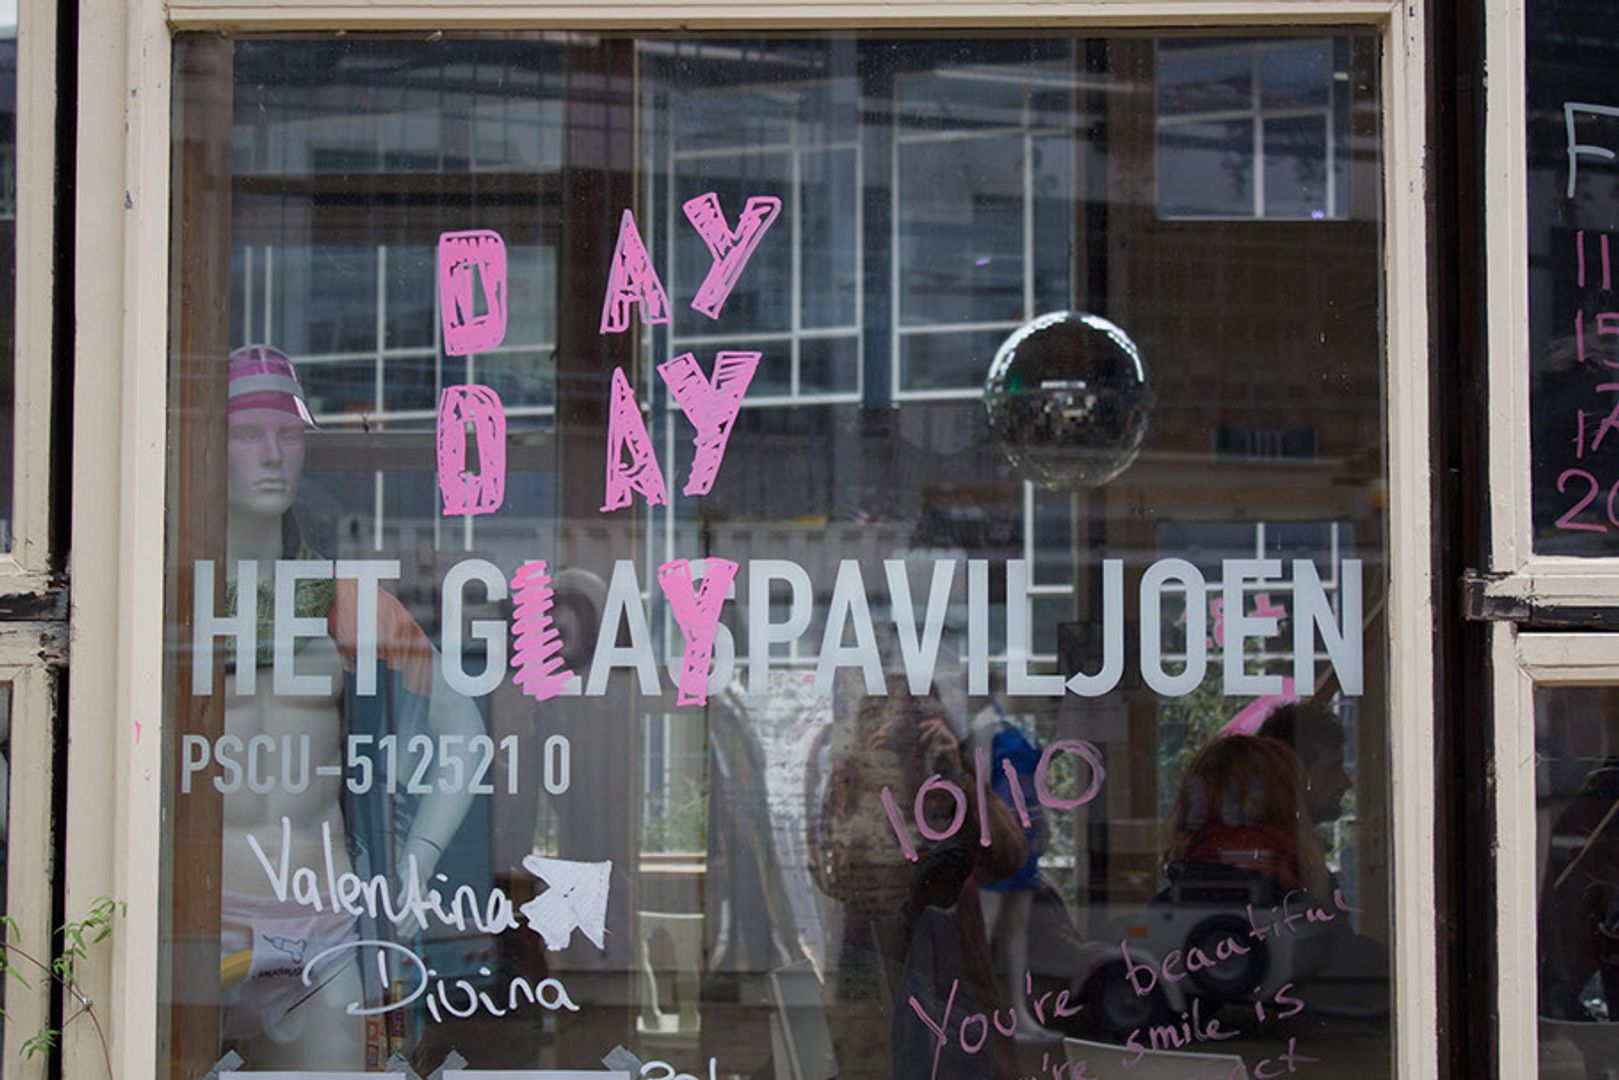 DAY
DAY
HET GLAYPAVILJOEN
PSCU-512521 0
Valentina
Divina
10/10
You're beaatiful
smile is
F
11
15
17
20